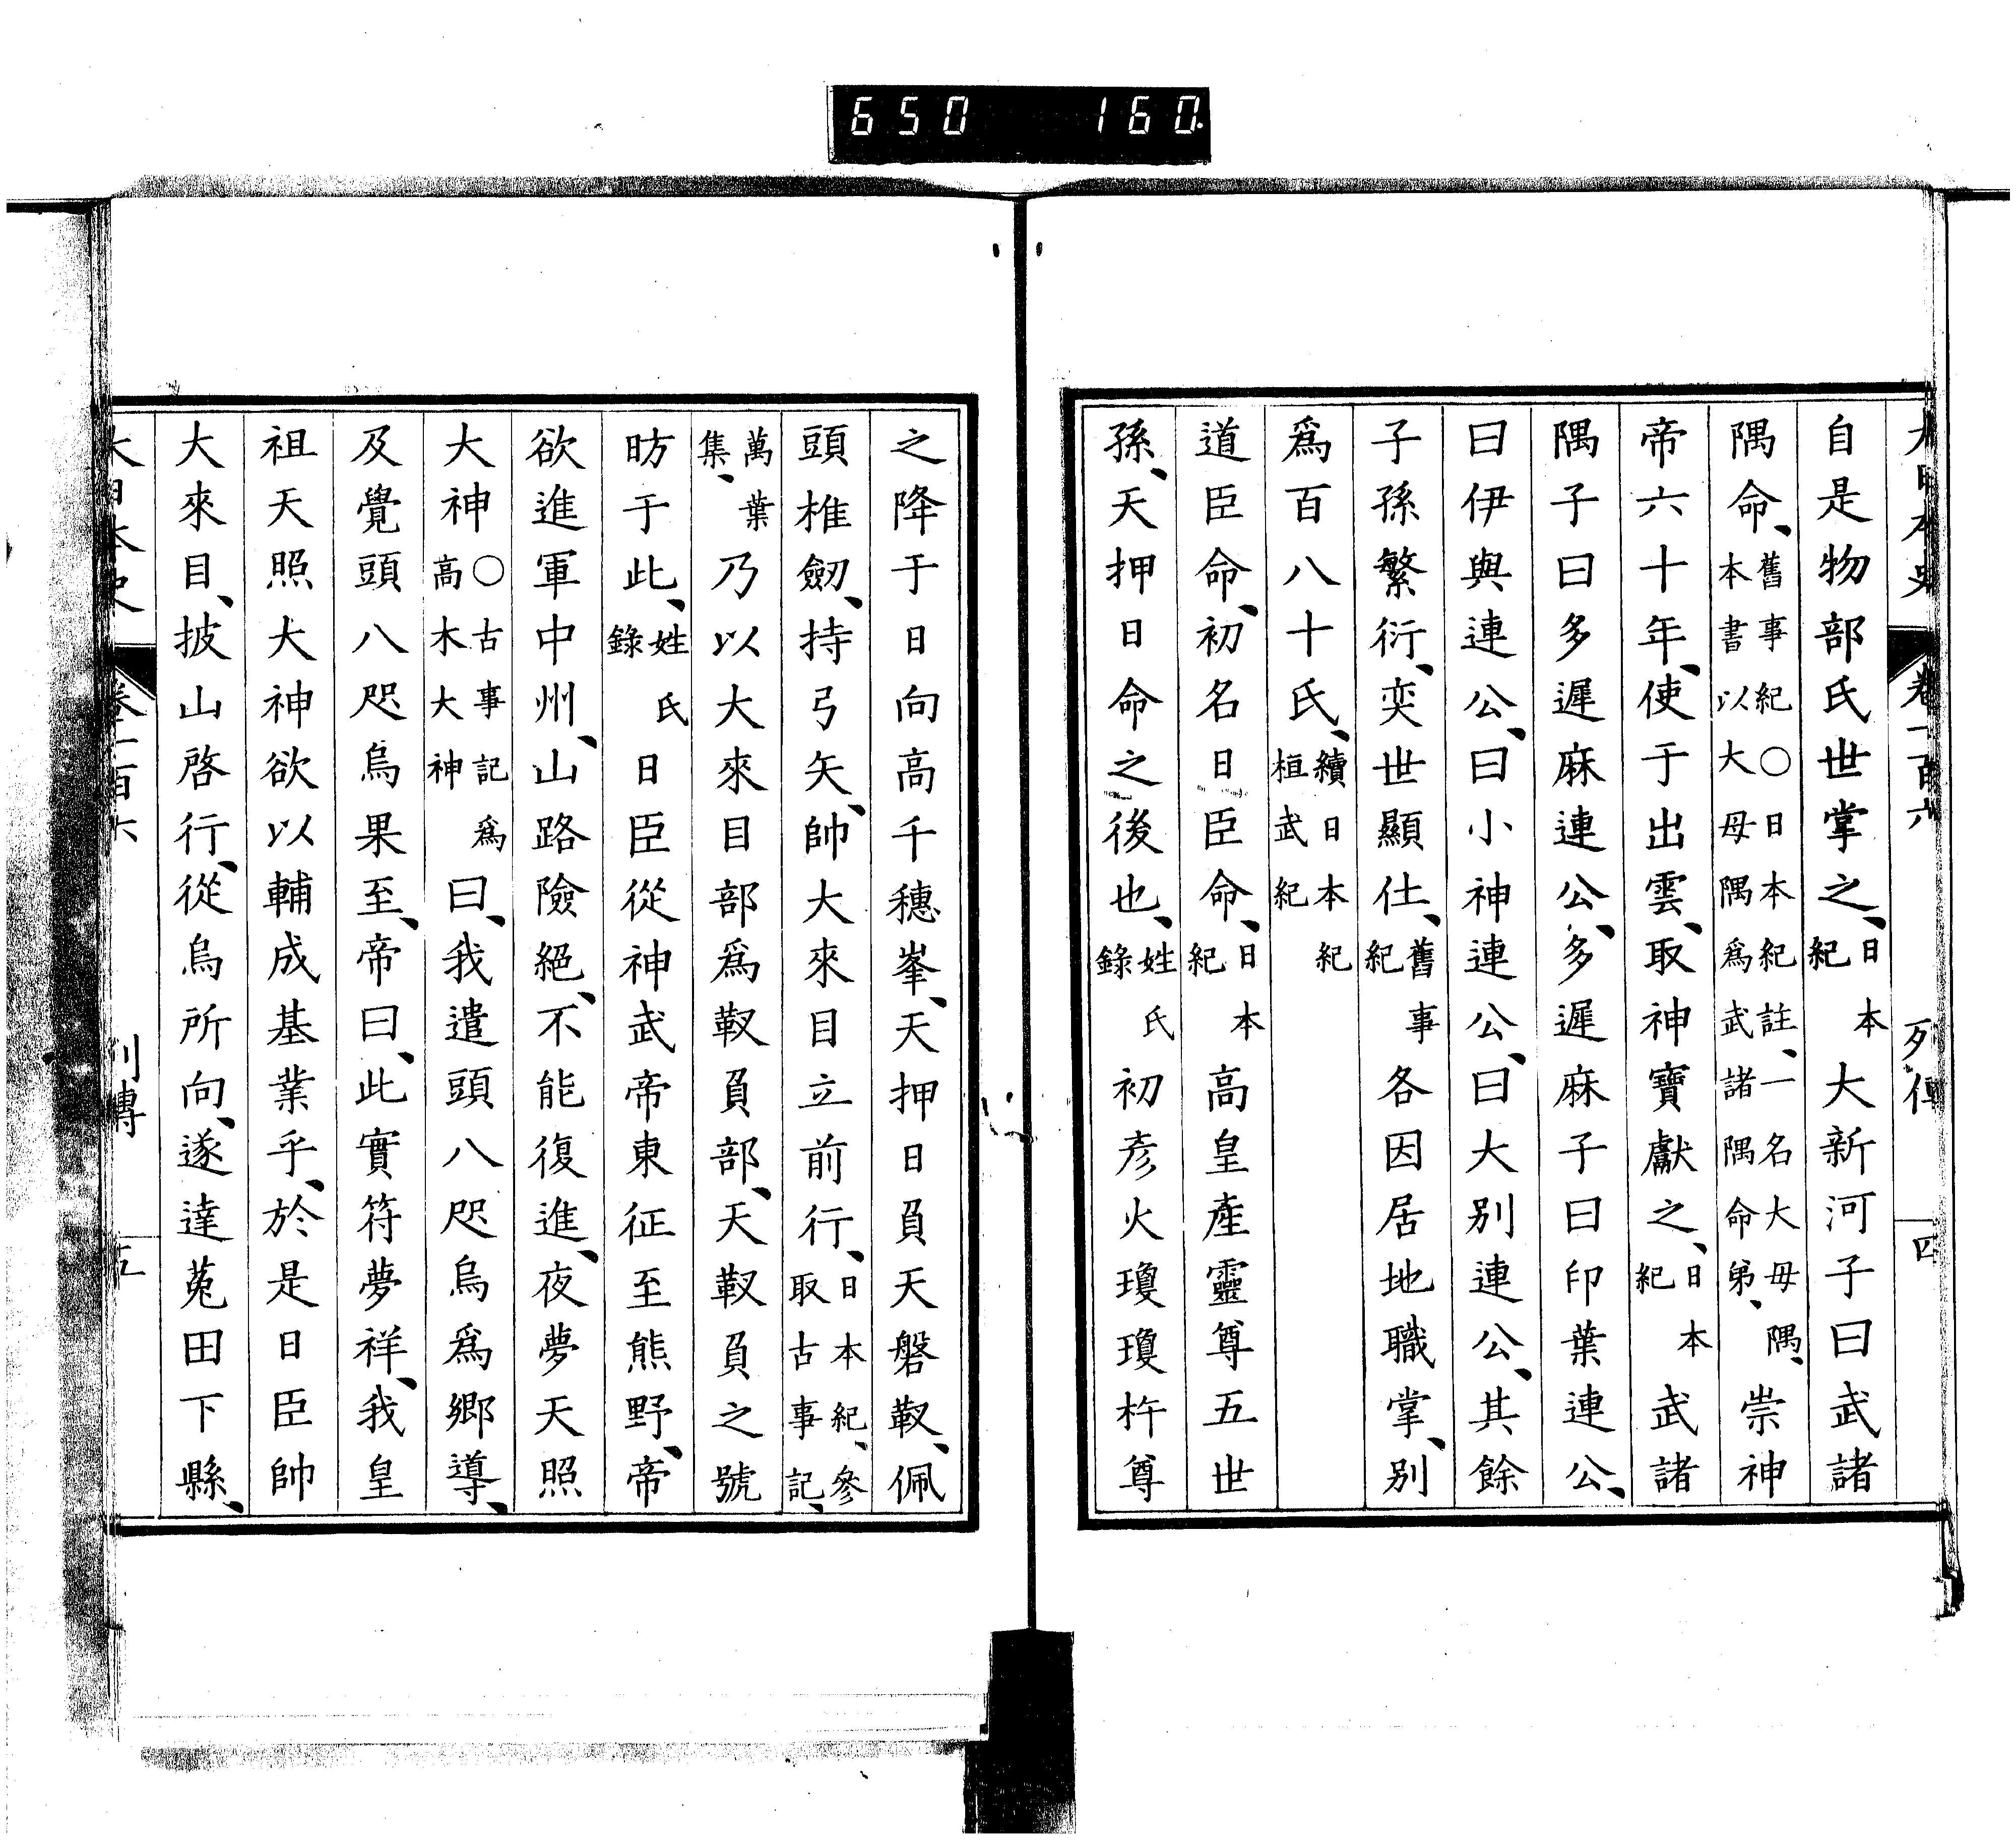 650 160
大日本史 卷一百六 列傳 四
自是物部氏世掌之、日本紀大新河子曰武諸
隅命、舊事紀〇日本紀註、一名大母隅、本書以大母隅爲武諸隅命弟、崇神
帝六十年、使于出雲、取神寶獻之、日本紀武諸
隅子曰多遲麻連公、多遲麻子曰印葉連公、
曰伊與連公、曰小神連公、曰大別連公、其餘
子孫繁衍、奕世顯仕、舊事紀各因居地職掌、別
爲百八十氏、續日本紀桓武紀
道臣命、初名日臣命、日本紀高皇產靈尊五世
孫、天押日命之後也、姓氏錄初彥火瓊瓊杵尊
之降于日向高千穗峯、天押日負天磐靫、佩
頭椎劒、持弓矢、帥大來目立前行、日本紀、參取古事記、
萬葉集、乃以大來目部爲靫負部、天靫負之號
昉于此、姓氏錄日臣從神武帝東征至熊野、帝
欲進軍中州、山路險絕、不能復進、夜夢天照
大神〇古事記爲高木大神曰、我遣頭八咫烏爲鄉導、
及覺頭八咫烏果至、帝曰、此實符夢祥、我皇
祖天照大神欲以輔成基業乎、於是日臣帥
大來目、披山啓行、從烏所向、遂達菟田下縣、
大日本史 卷一百六 列傳 五